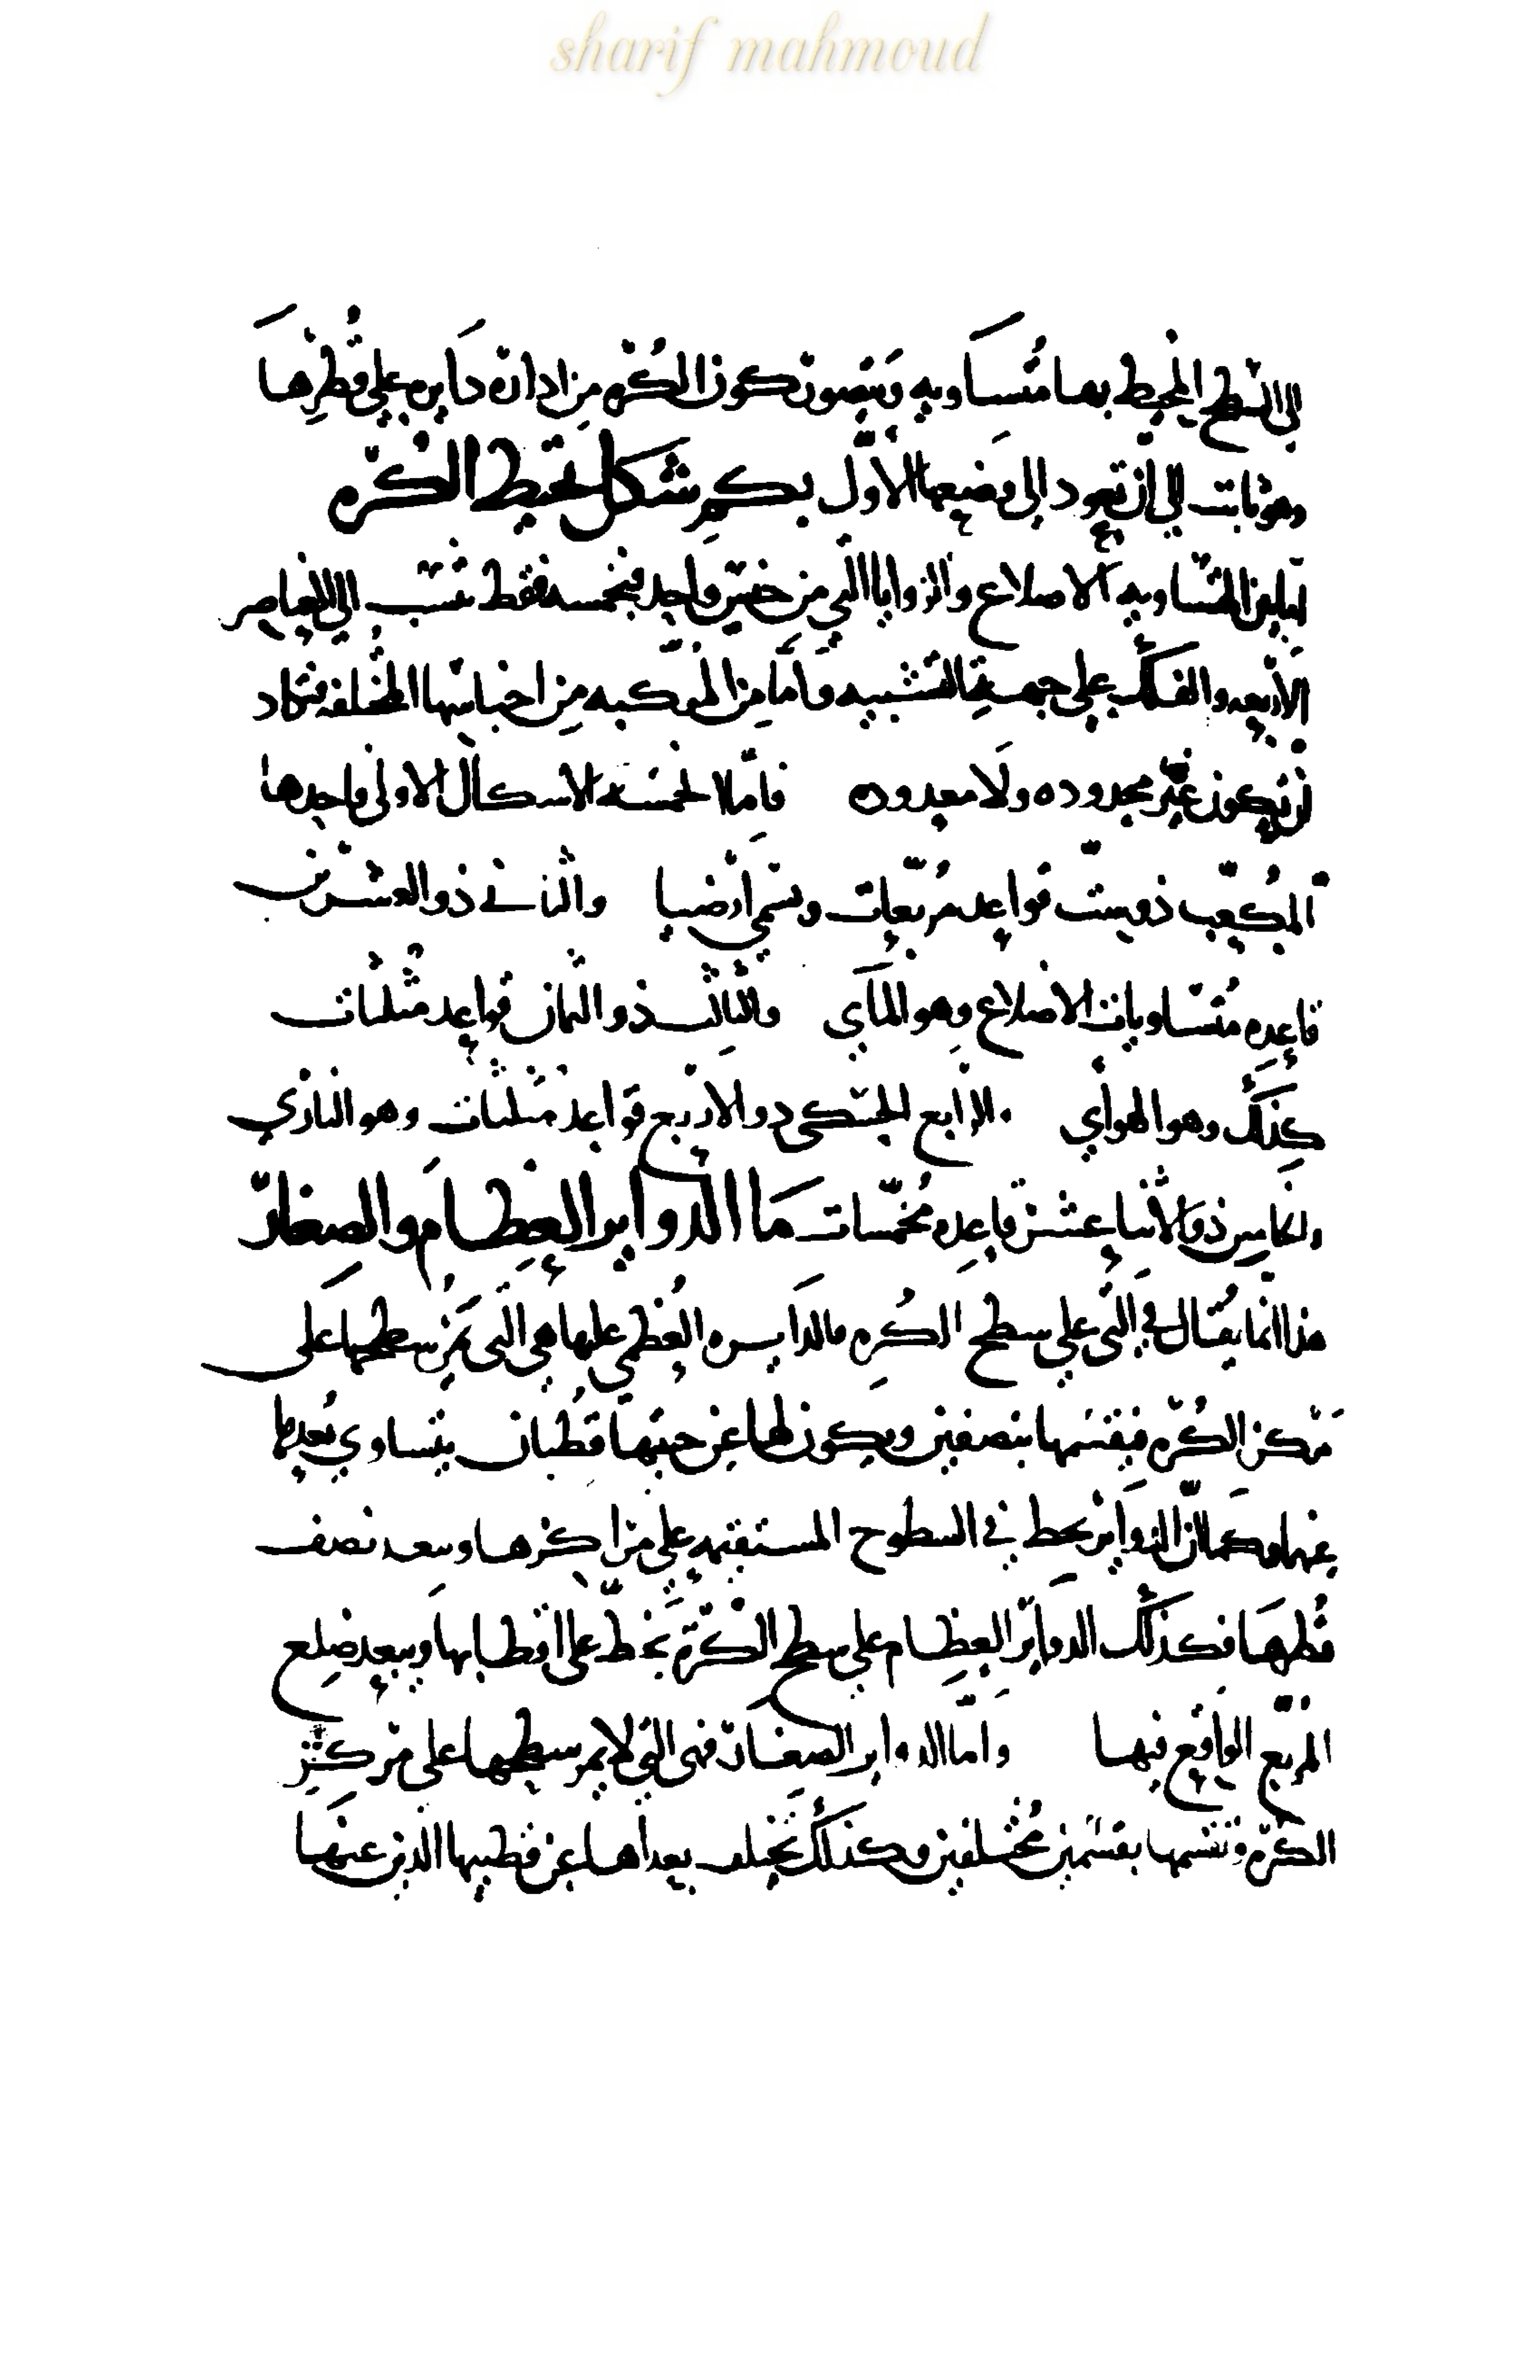 sharif mahmoud
الى السطح المحيط بها متساويه ويتصور كون الكره من ادارة دايره على قطرها
وهو ثابت الى ان تعود الى وضعها الاول بكم شكل تحيط الكره
اما من المتساويه الاضلاع والزوايا التي من جنس واحد فبخمسه فقط تنسب الى العناصر
الاربعه والفلك على جهة التشبيه واما من المركبه من اجناسها المختلفه فتكاد
ان تكون غير محدوده ولا معدوده فاما الخمسه الاشكال الاولى فاحدها
المكعب ذو ست قواعد مربعات ويسمى ارضيا والثاني ذو العشرين
قاعده متساويات الاضلاع وهو المآي والثالث ذو الثمان قواعد مثلثات
كذلك وهو الهوآي والرابع ذو الاربع قواعد مثلثات وهو الناري
والخامس ذو الاثنتا عشرة قاعده مخمسات ما الدواير العظام والصغار
هذا انما يقال في التي على سطح الكره فالدايره العظمى عليها هي التي يمر سطحها على
مركز الكره فيقسمها بنصفين ويكون لها عن جنبيها قطبان يتساوي بعدهما
عنها وكما ان الدواير تخط في السطوح المستقيمه على مراكزها وببعد نصف
قطرها فكذلك الدواير العظام على سطح الكره تخط على اقطابها وببعد ضلع
المربع الواقع فيها واما الدواير الصغار فهى التي لا يمر سطحها على مركز
الكره وتقسمها بقسمين مختلفين وكذلك تختلف بعداها عن قطبيها الذين عنها